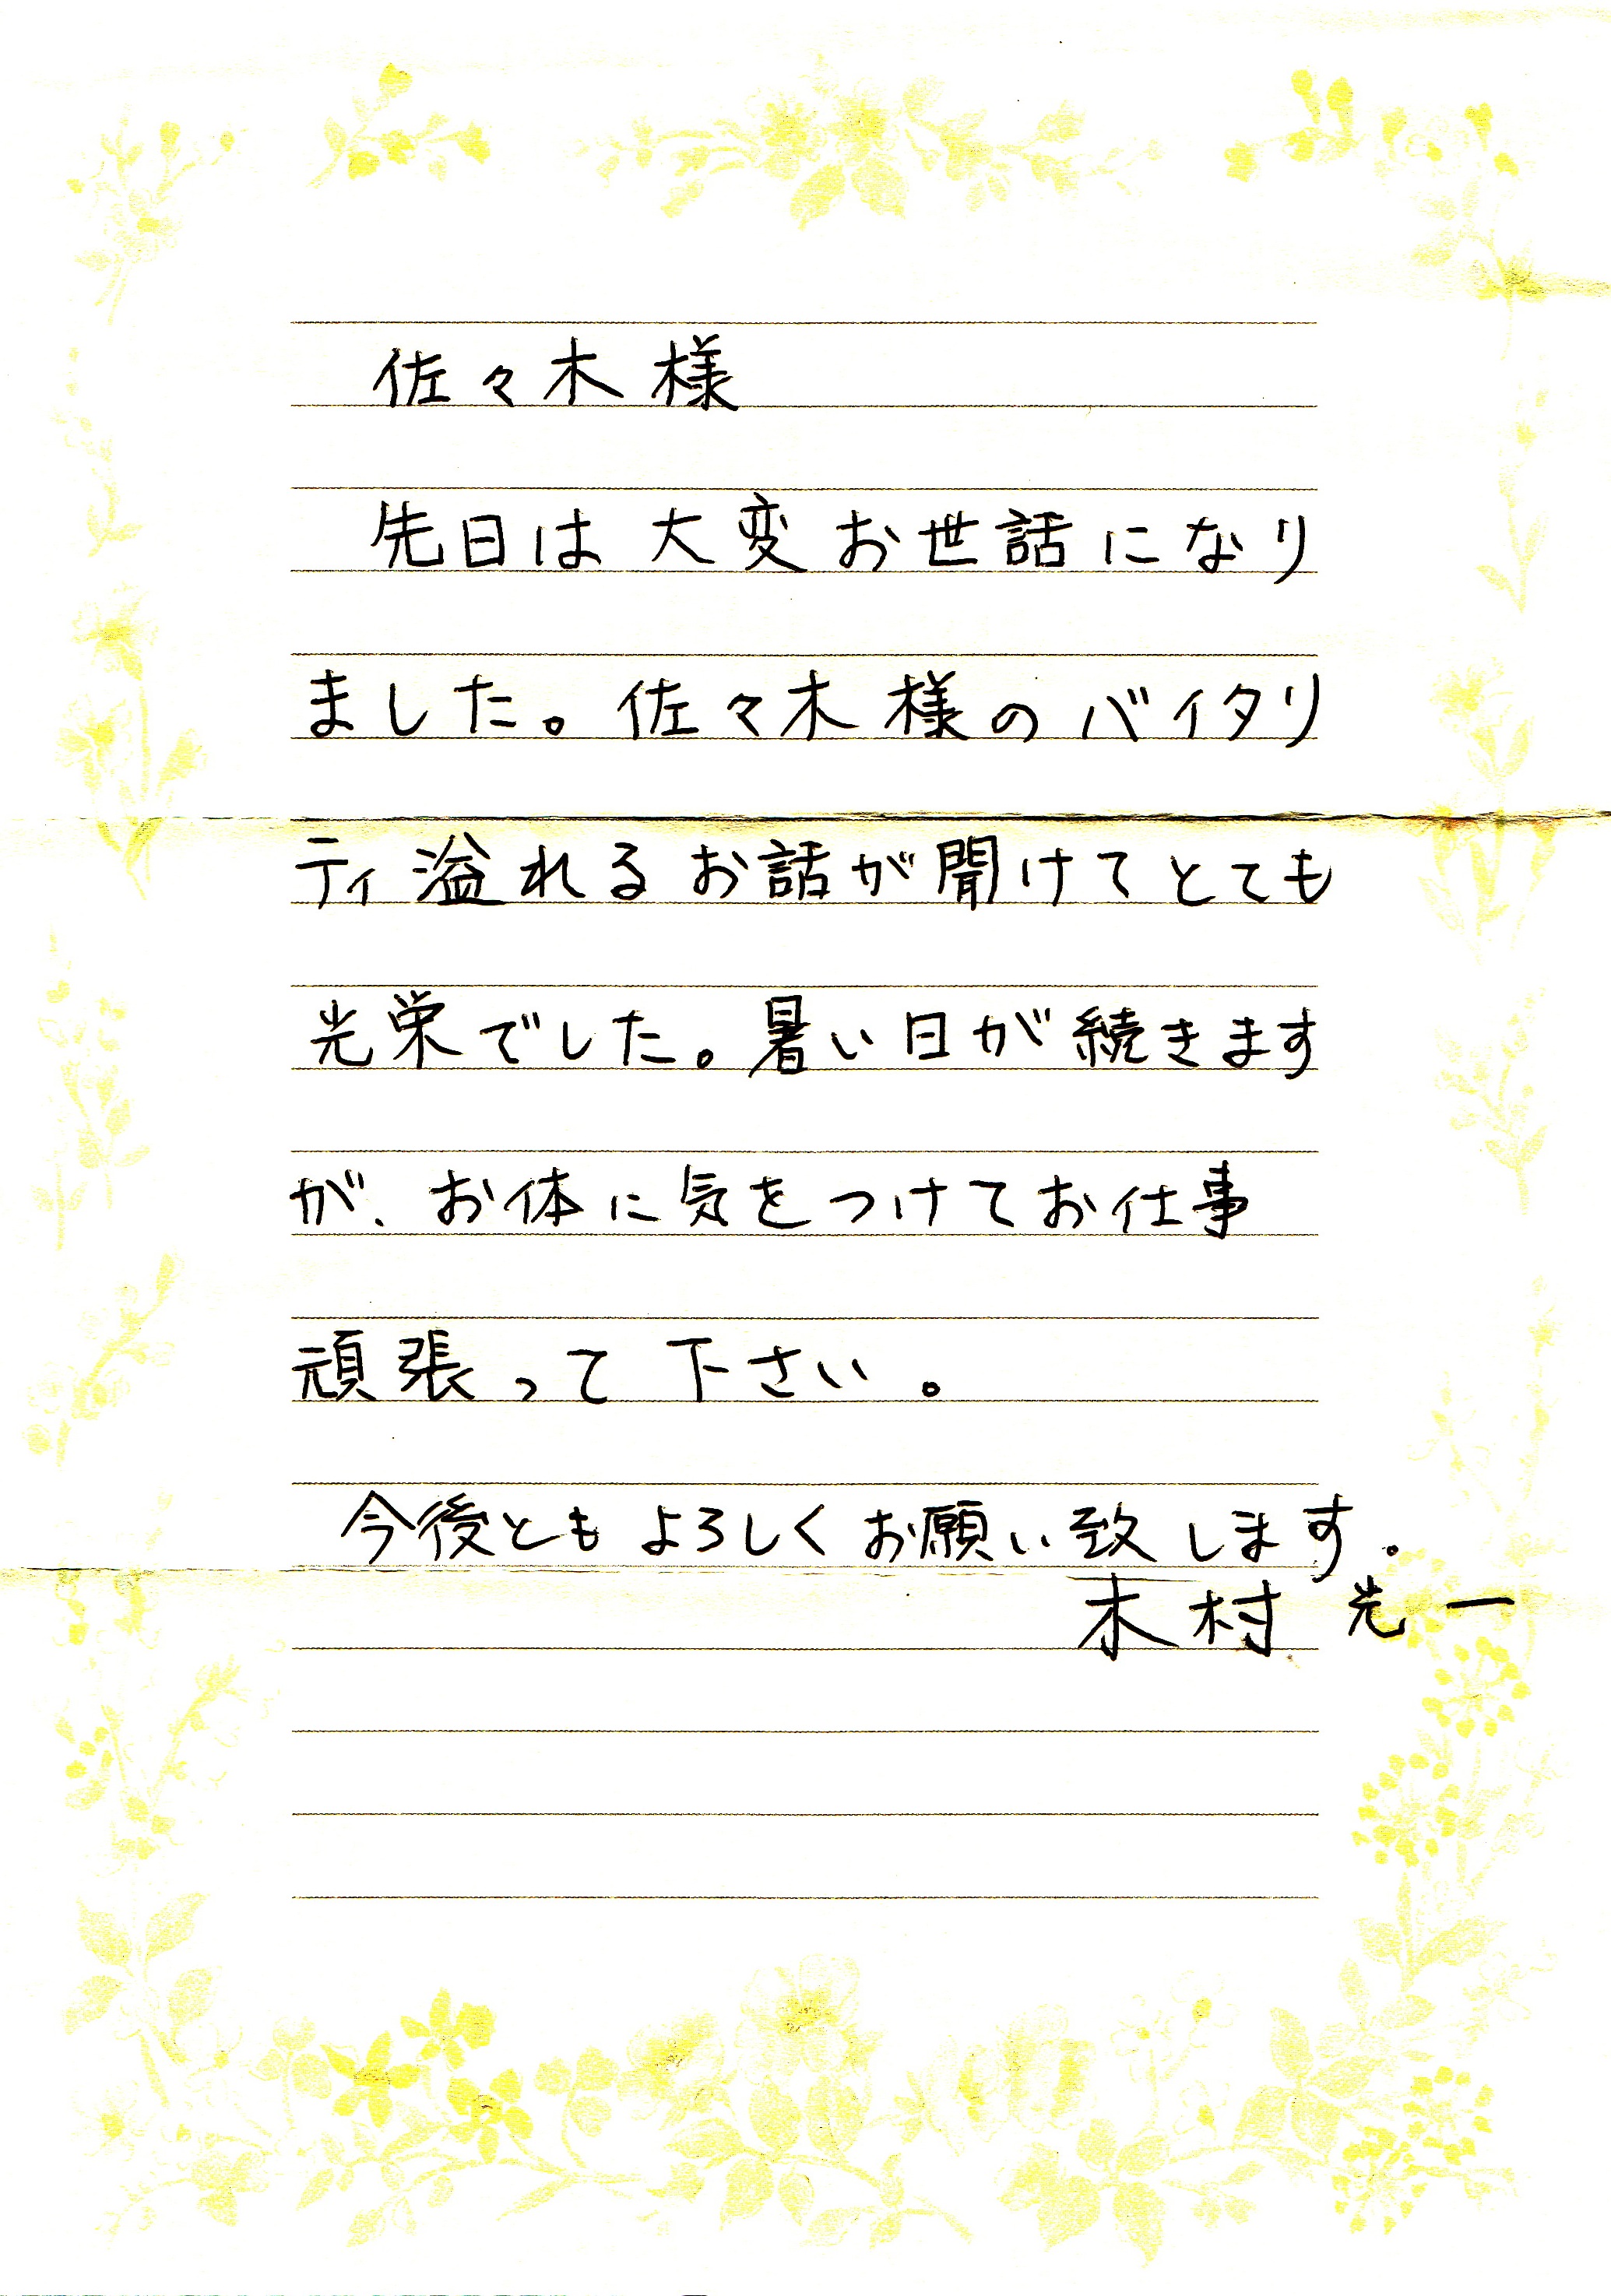 佐々木様
先日は大変お世話になり
ました。佐々木様のバイタリ
ティ溢れるお話が聞けてとても
光栄でした。暑い日が続きます
が、お体に気をつけてお仕事
頑張って下さい。
今後ともよろしくお願い致します。
木村光一